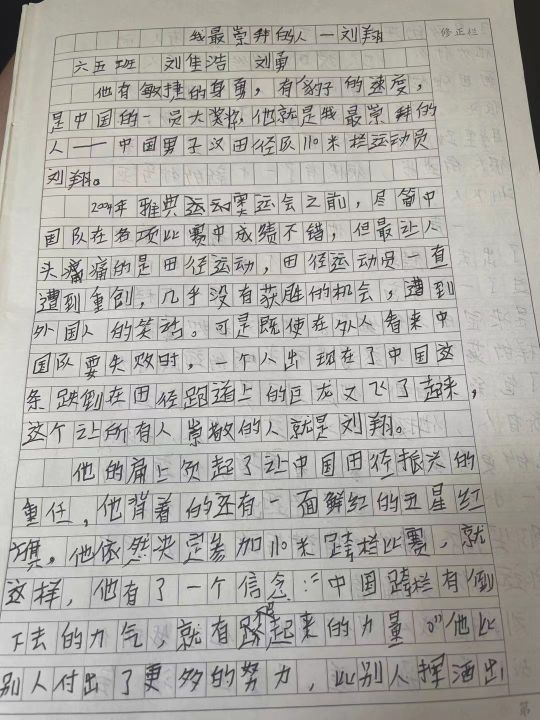 我最崇拜的人—刘翔
修正栏
六五班 刘佳浩 刘勇
他有敏捷的身勇，有豹子的速度，
是中国的一员大奖将，他就是我最崇拜的
人——中国男子汉田径队110米栏运动员
刘翔。
2004年雅典运动奥运会之前，尽管中
国队在各项比赛中成绩不错，但最让人
头痛痛的是田径运动，田径运动员一直
遭到重创，几乎没有获胜的机会，遭到
外国人的笑话。可是既使在外人看来中
国队要失败时，一个人出现在了中国这
条跌倒在田径跑道上的巨龙又飞了起来，
这个让所有人崇敬的人就是刘翔。
他的肩上负起了让中国田径振兴的
重任，他背着的还有一面鲜红的五星红
旗。他依然决定参加110米跨栏比赛，就
这样，他有了一个信念："中国跨栏有倒
下去的力气，就有爬起来的力量。"他比
别人付出了更多的努力，比别人挥洒出
第